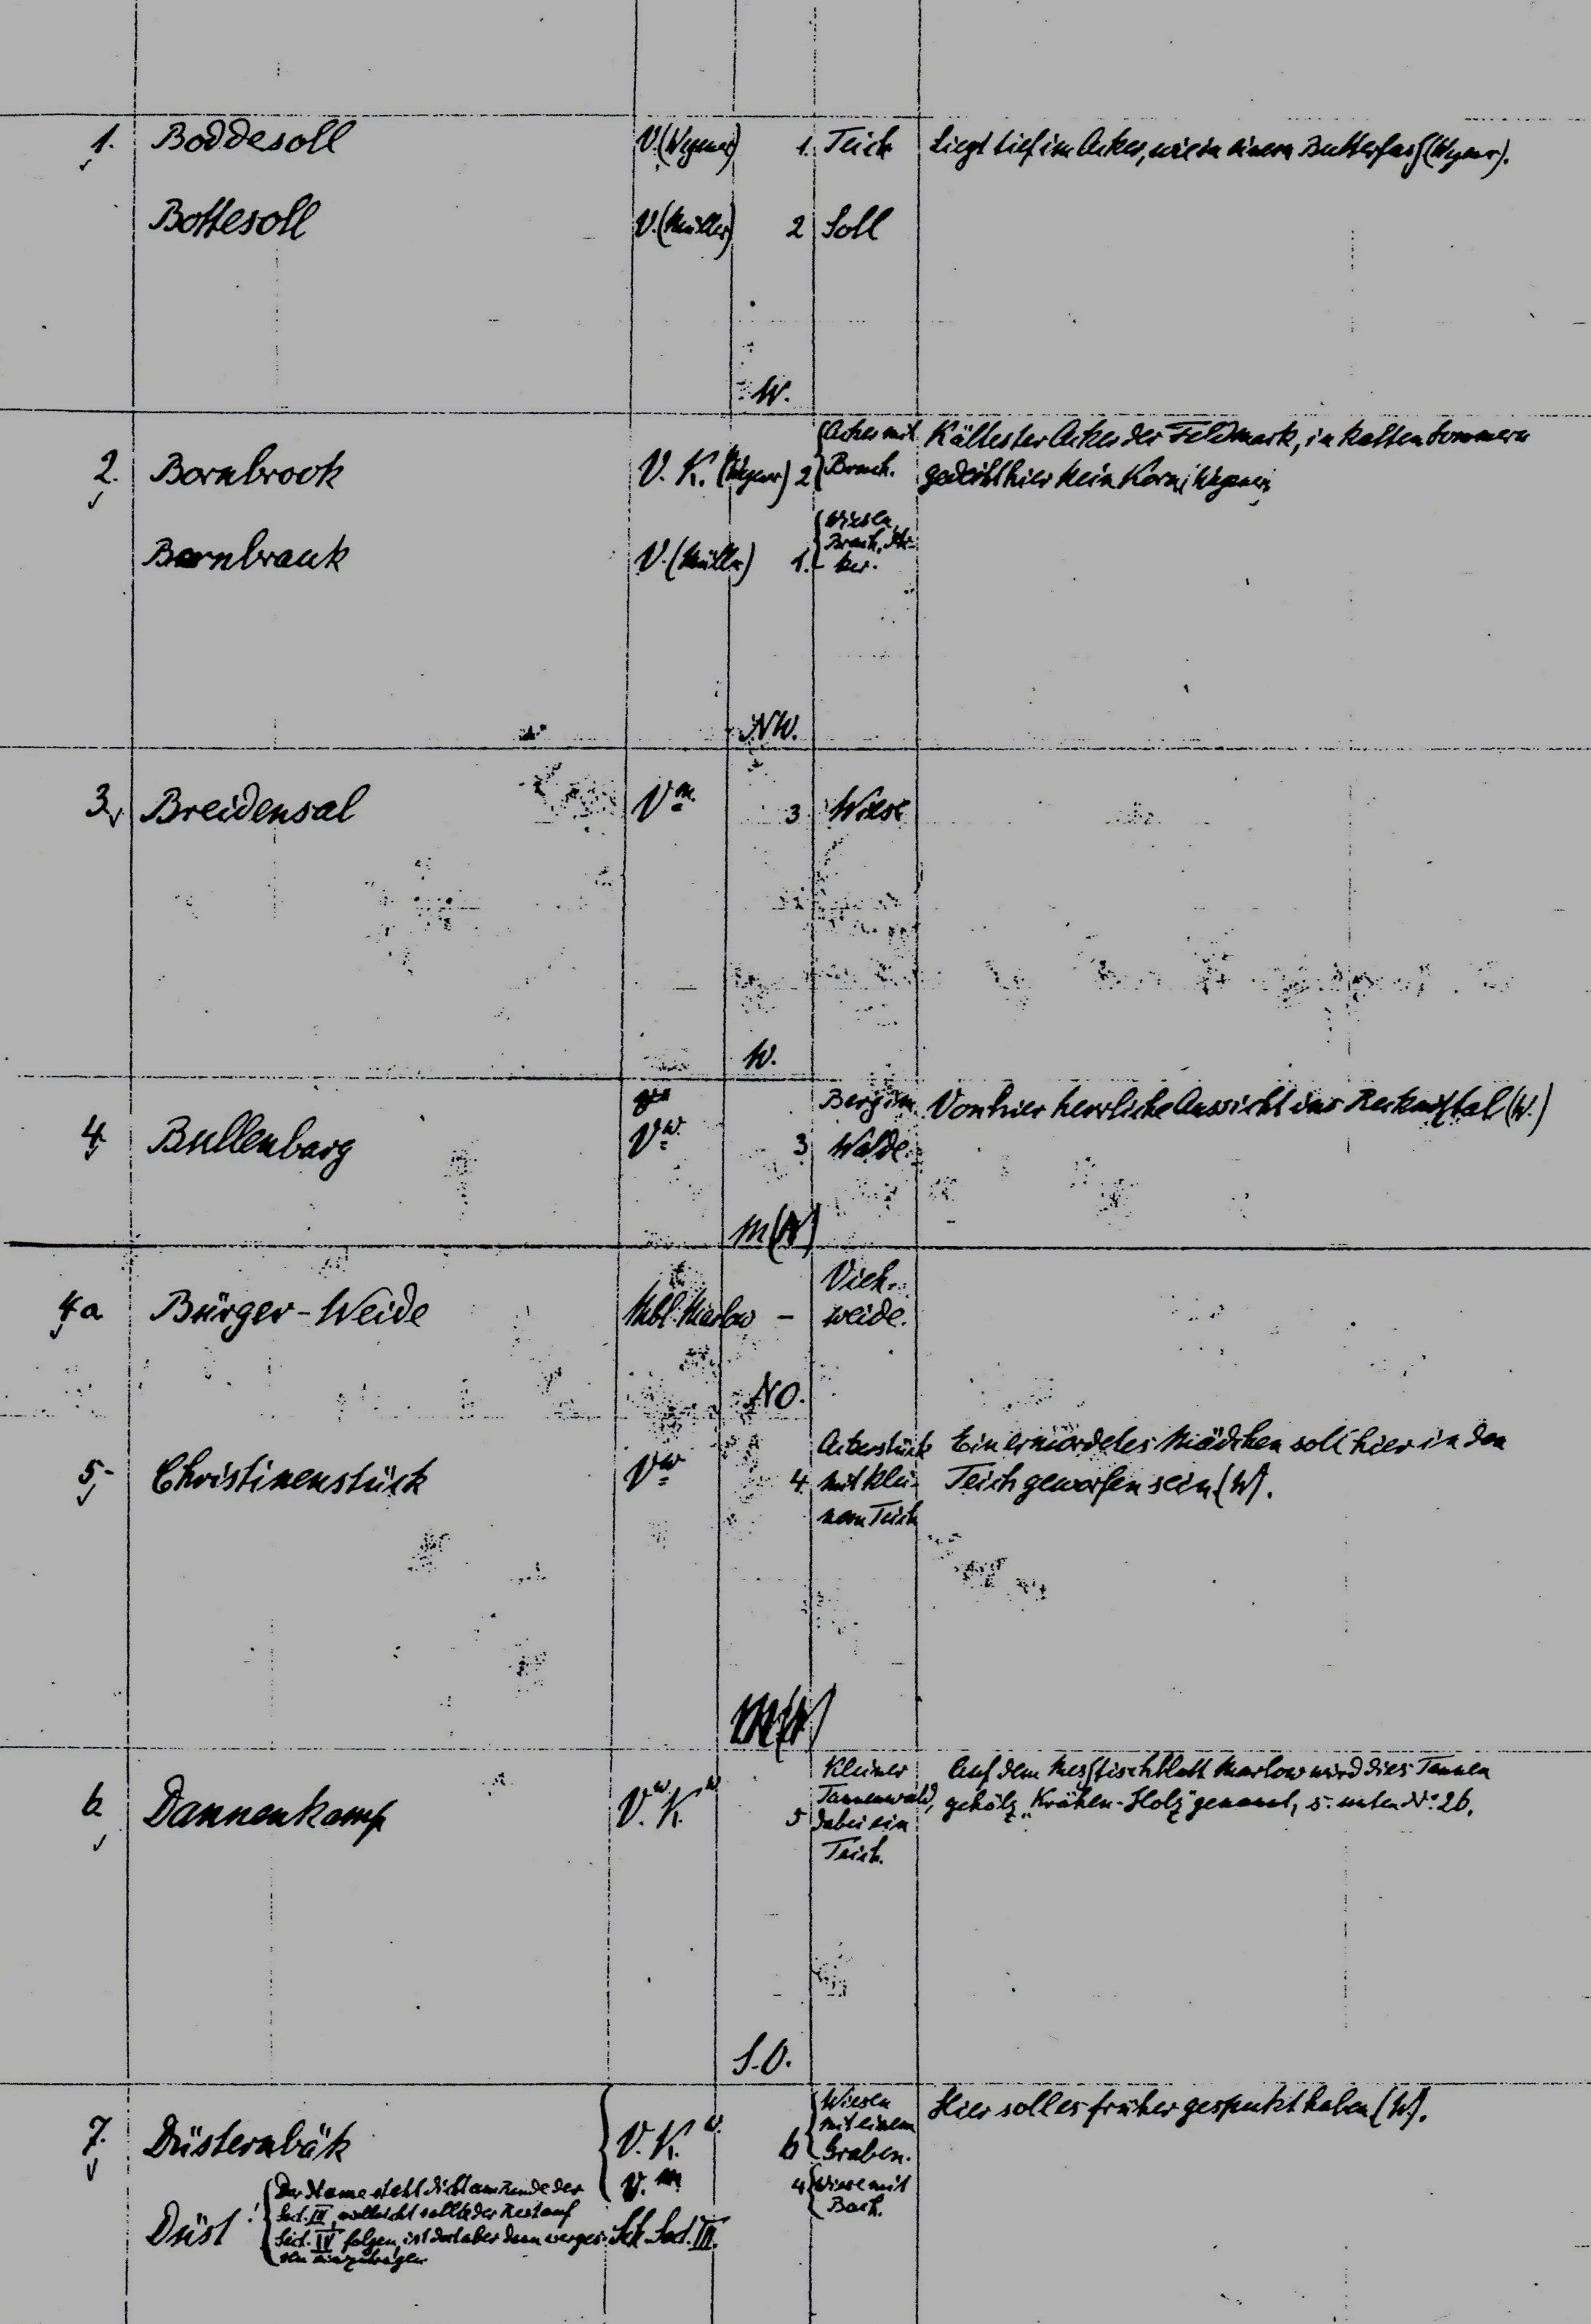 1. Boddesoll V.(Wegner) 1. Teich Liegt tief im Acker, wie in einem Butterfaß (Wegner).
Bottesoll V.(Müller) 2 Soll
W.
2. Bornbrook V. K. (Wegner) 2 {Acker mit Bruch. Kältester Acker der Feldmark, in kalten Sommern
gedeiht hier kein Korn (Wegner)
Bornbrauk V.(Müller) 1. {Wiesen, Bruch, Ak-
ker.
NW.
3. Breidensal V. m. 3 Wiese
W.
4. Bullenbarg V. w. 3 Berg im Von hier herrliche Aussicht ins Recknitztal (W.)
Walde.
m(W)
4a Bürger-Weide Mbl. Marlow – Vieh-
weide.
NO.
5. Christinenstück V. w. 4. Ackerstück Ein ermordetes Mädchen soll hier in den
mit klei- Teich geworfen sein (W).
nem Teich
6. Dannenkamp V. w K. w 5 Kleiner Auf dem Meßtischblatt Marlow wird dies Tannen
Tannenwald, gehölz „Krähen-Holz" genannt, s. unten No. 26.
dabei ein
Teich.
S.O.
7. Düsternbäk V. K. w. 6 {Wiesen Hier soll es früher gespukt haben (W).
mit einem
Graben.
V. m 4 {Wiese mit
Bach.
Düst! {Der Name steht dicht am Rande der
Sect. III, vielleicht sollte der Rest auf
Sect. IV folgen, ist dort aber dann verges-
sen einzutragen
Sch. Sect. III.